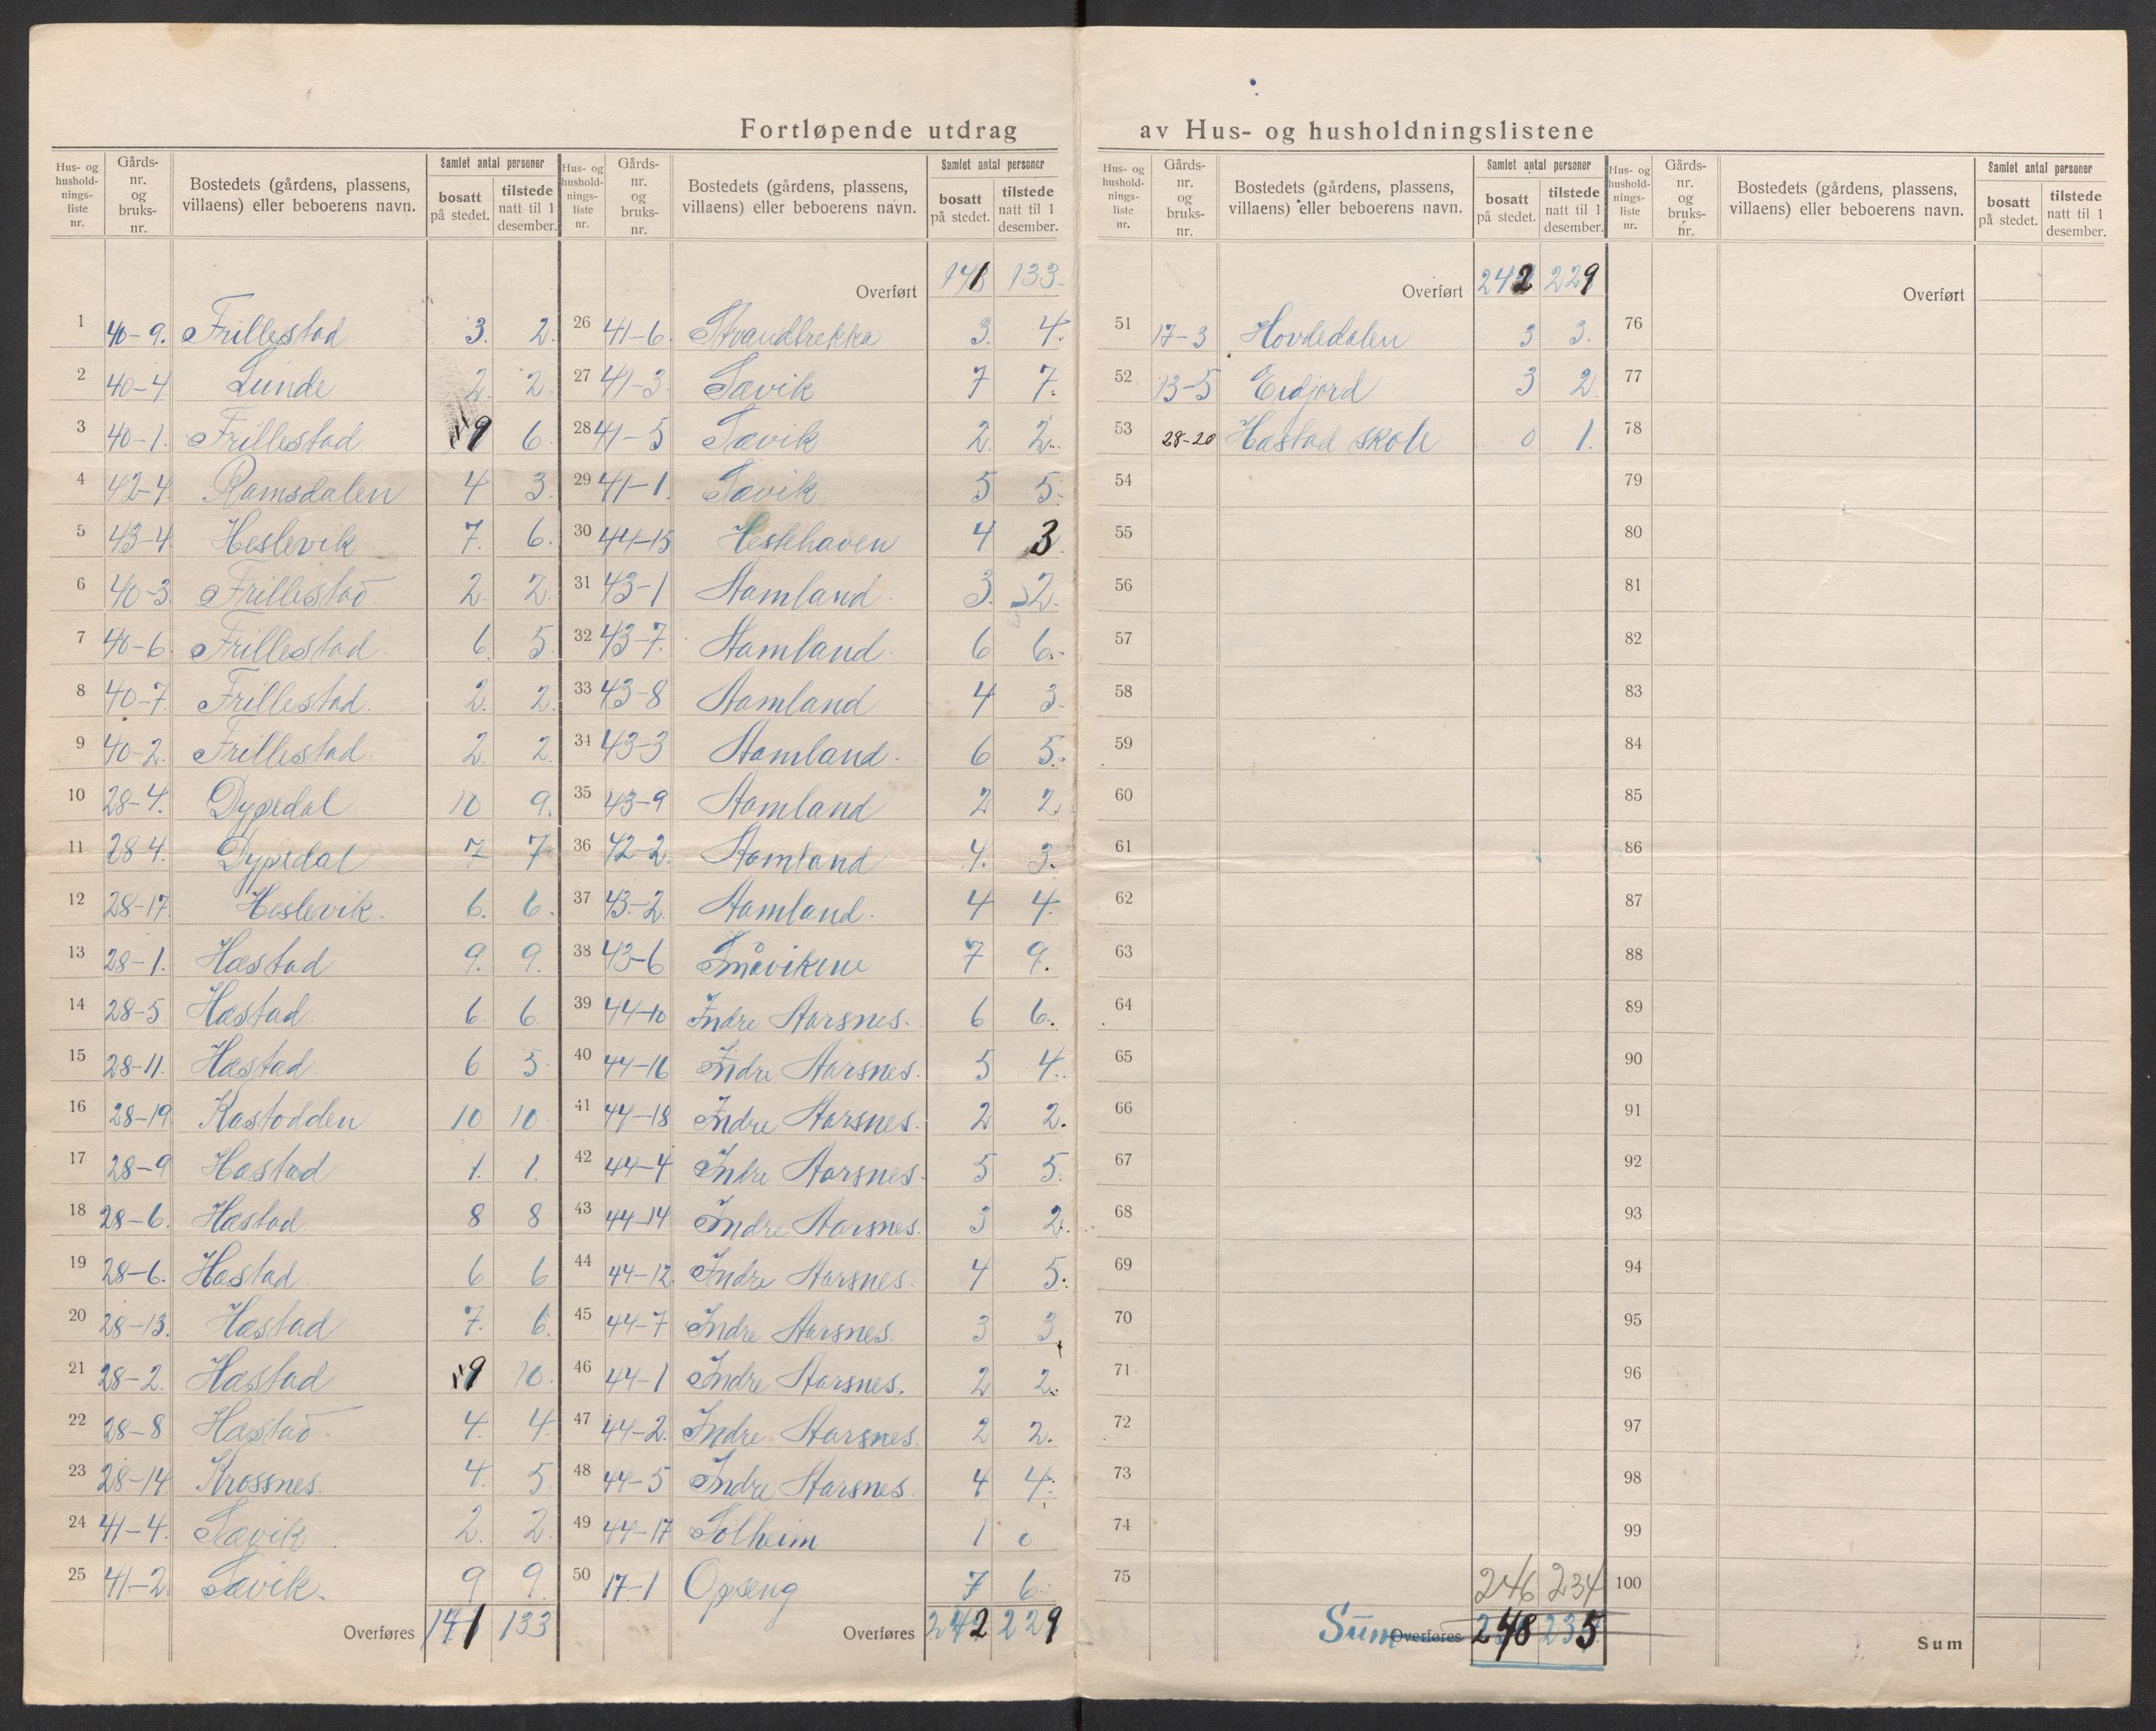 Fortløpende utdrag av Hus- og husholdningslistene
Hus- og husholdnings-liste nr. | Gårds-nr. og bruks-nr. | Bostedets (gårdens, plassens, villaens) eller beboerens navn. | Samlet antal personer | bosatt på stedet. | tilstede natt til 1 desember.
1 40-9. Frillestad 3. 2.
2 40-4 Lunde 2. 2.
3 40-1. Frillestad 9 6.
4 42-4 Ramsdalen 4 3.
5 43-4 Heslevik 7. 6.
6 40-3 Frillestad 2. 2.
7 40-6. Frillestad 6. 5.
8 40-7. Frillestad. 2. 2.
9 40-2. Frillestad. 2. 2.
10 28-4. Dypedal 10 9.
11 28-4. Dypedal 7 7
12 28-17. Heslevik. 6. 6.
13 28-1. Hæstad 9. 9.
14 28-5 Hæstad. 6. 6.
15 28-11. Hæstad. 6 5.
16 28-19. Kastodden 10 10.
17 28-9 Hæstad 1. 1.
18 28-6. Hæstad. 8 8
19 28-6. Hæstad. 6 6
20 28-13. Hæstad 7. 6.
21 28-2. Hæstad 9 10.
22 28-8 Hæstad. 4. 4.
23 28-14. Krossnes. 4. 5.
24 41-4. Sævik. 2. 2.
25 41-2. Sævik. 9 9.
Overføres 141 133
Hus- og husholdnings-liste nr. | Gårds-nr. og bruks-nr. | Bostedets (gårdens, plassens, villaens) eller beboerens navn. | Samlet antal personer | bosatt på stedet. | tilstede natt til 1 desember.
Overført 141 133.
26 41-6. Strandbrekka 3. 4.
27 41-3. Sævik 7 7.
28 41-5 Sævik 2. 2.
29 41-1. Sævik 5 5.
30 44-15 Hestehaven 4 3.
31 43-1 Hamland. 3. 2.
32 43-7. Hamland. 6 6.
33 43-8 Hamland 4 3.
34 43-3 Hamland. 6 5.
35 43-9 Hamland 2 2.
36 42-2. Hamland 4. 3.
37 43-2. Hamland. 4 4.
38 43-6 Småvikene 7 9.
39 44-10 Indre Aarsnes. 6 6.
40 44-16 Indre Aarsnes. 5 4.
41 44-18 Indre Aarsnes. 2 2.
42 44-4 Indre Aarsnes. 5 5.
43 44-14 Indre Aarsnes. 3 2.
44 44-12. Indre Aarsnes. 4 5.
45 44-7 Indre Aarsnes. 3 3
46 44-1 Indre Aarsnes. 2 2.
47 44-2. Indre Aarsnes. 2 2.
48 44-5 Indre Aarsnes. 4 4.
49 44-17 Solheim 1 0
50 17-1 Opseng 7 6.
Overføres 242 229
Hus- og husholdnings-liste nr. | Gårds-nr. og bruks-nr. | Bostedets (gårdens, plassens, villaens) eller beboerens navn. | Samlet antal personer | bosatt på stedet. | tilstede natt til 1 desember.
Overført 242 229
51 17-3 Hovdedalen 3 3.
52 13-5 Eidjord 3 2.
53 28-20 Hæstad skole 0 1.
54
55
56
57
58
59
60
61
62
63
64
65
66
67
68
69
70
71
72
73
74
75 246 234
Sum Overføres 248 235
Hus- og husholdnings-liste nr. | Gårds-nr. og bruks-nr. | Bostedets (gårdens, plassens, villaens) eller beboerens navn. | Samlet antal personer | bosatt på stedet. | tilstede natt til 1 desember.
Overført
76
77
78
79
80
81
82
83
84
85
86
87
88
89
90
91
92
93
94
95
96
97
98
99
100
Sum